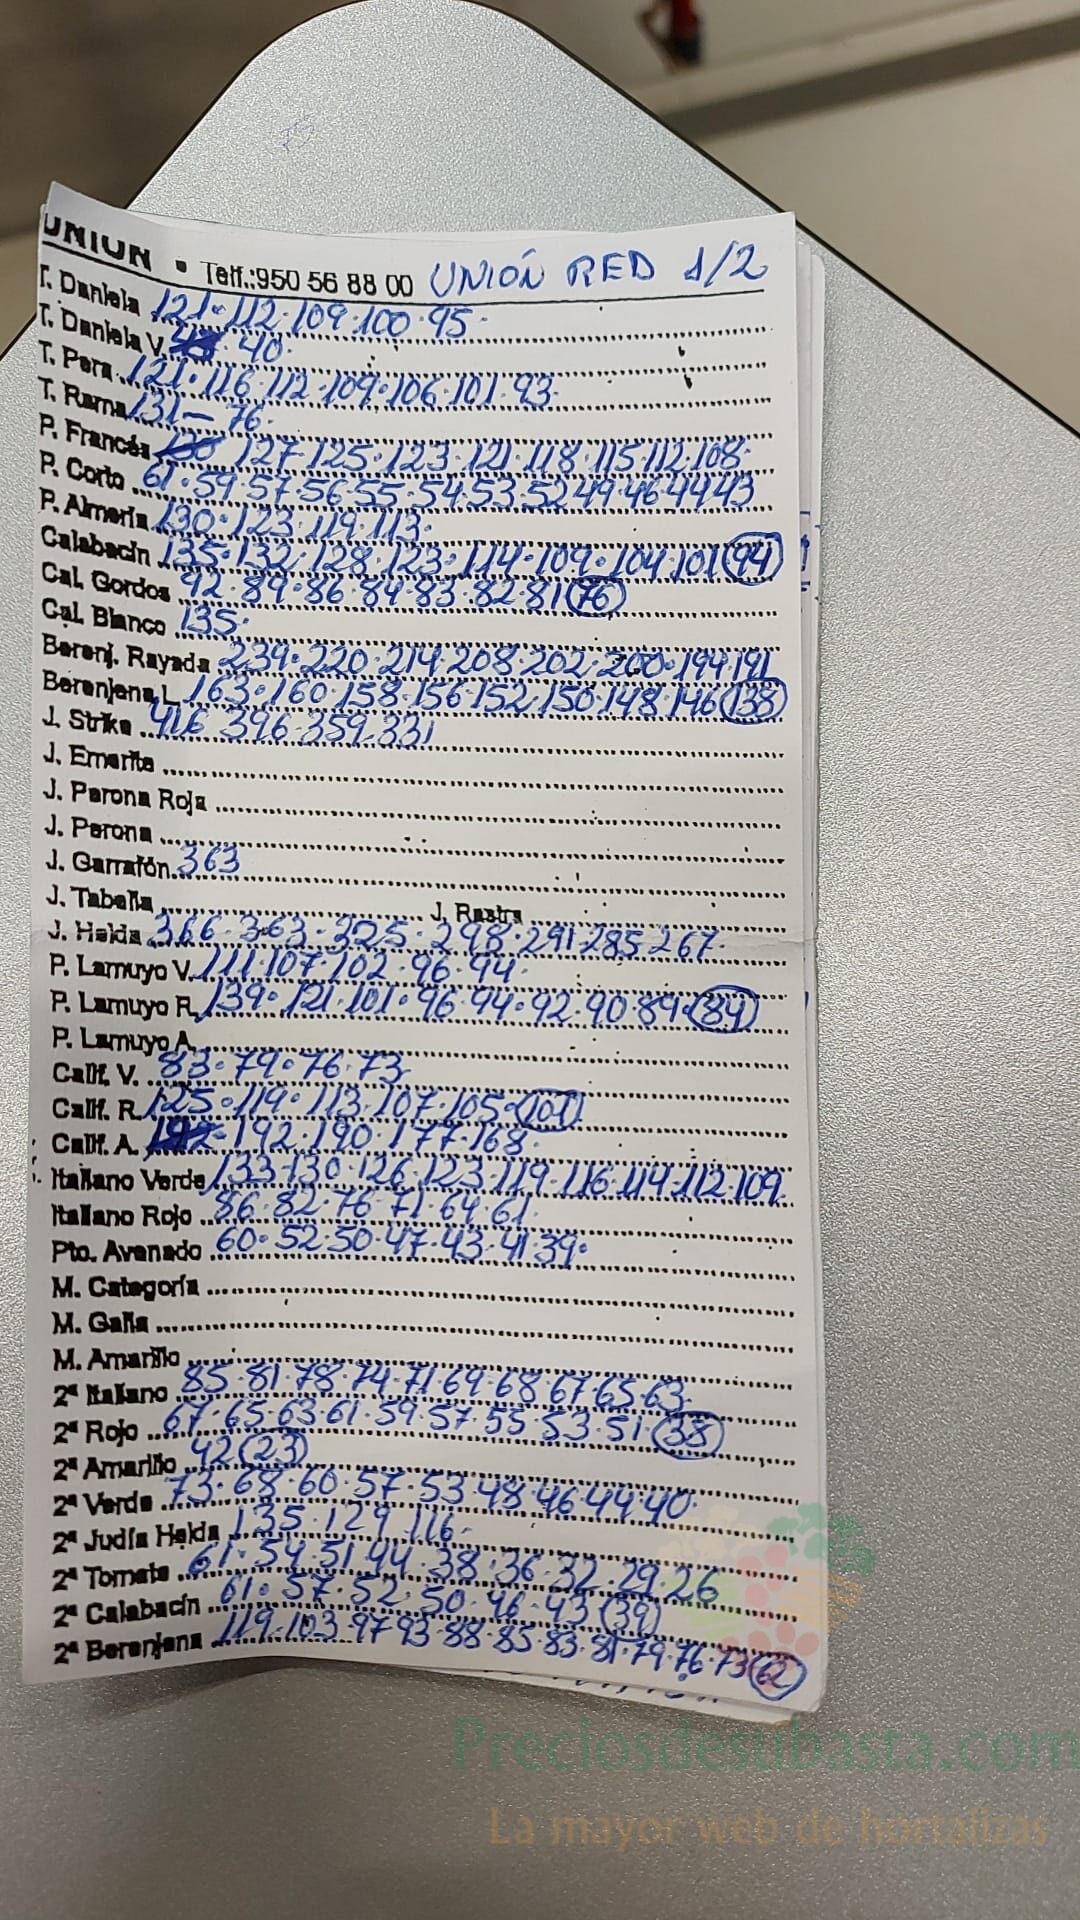 UNION • Telf.:950 56 88 00 UNIÓN RED 1/2
T. Daniela 121·112·109·100·95·
T. Daniela V. 40·
T. Pera 121·116·112·109·106·101·93·
T. Rama 131— 76·
P. Francés 130 127·125·123·121·118·115·112·108·
P. Corto 61·59·57·56·55·54·53·52·49·46·44·43
P. Almería 130·123·119·113·
Calabacín 135·132·128·123·114·109·104·101 (94)
Cal. Gordos 92·89·86·84·83·82·81 (76)
Cal. Blanco 135·
Berenj. Rayada 239·220·214·208·202·200·194·191
Berenjena L. 163·160·158·156·152·150·148·146 (138)
J. Strike 416·396·359·331
J. Emerite
J. Perona Roja
J. Perona
J. Garrafón 363
J. Tabella J. Rastra
J. Helda 366·363·325·298·291·285·267·
P. Lamuyo V. 111·107·102·96·94·
P. Lamuyo R. 139·121·101·96·94·92·90·89·(84)
P. Lamuyo A.
Calif. V. 83·79·76·73
Calif. R. 125·119·113·107·105·(101)
Calif. A. 192·190·177·168·
Italiano Verde 133·130·126·123·119·116·114·112·109
Italiano Rojo 86·82·76·71·64·61·
Pto. Avenado 60·52·50·47·43·41·39·
M. Categoría
M. Galia
M. Amarillo
2ª Italiano 85·81·78·74·71·69·68·67·65·63
2ª Rojo 67·65·63·61·59·57·55·53·51·(38)
2ª Amarillo 42 (23)
2ª Verde 73·68·60·57·53·48·46·44·40·
2ª Judía Helda 135·129·116·
2ª Tomate 61·54·51·44·38·36·32·29·26
2ª Calabacín 61·57·52·50·46·43 (39)
2ª Berenjena 119·103·97·93·88·85·83·81·79·76·73 (62)
Preciosdesubasta.com
La mayor web de hortalizas